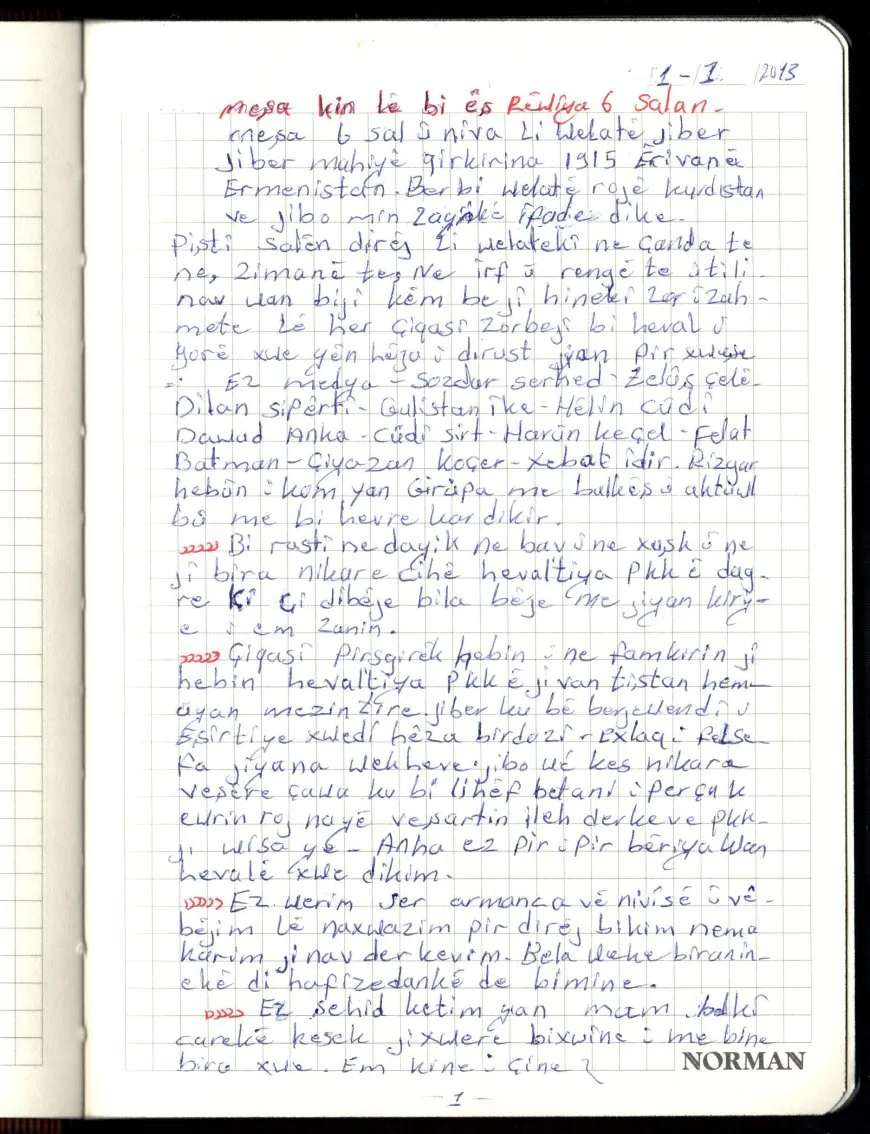 1-1 2013
meşa kin lê bi êş Rêwîya 6 Salan-
meşa 6 sal û nîva Li Welatê jiber
Jiber mahiyê qirkirina 1915 Êrivanê
Ermenistan. Ber bi welatê rojê kurdistan
ve jibo min zayînkê îfade dike.
Piştî salên dirêj Li welatekî ne çanda te
ne, zimanê te, Ne irf û rengê te û tili
nav wan bijî kêm be jî hinekî zor û zah-
mete Lê her çiqasî zor beji bi heval û
gorê xwe yên hêja û dirust jiyan pir xweşe
Ez medya - Sozdar serhed - Zelâş çelê-
Dîlan sipêrtî - Gulistan îke - Hêlîn cûdî
Dawud Anka - Cûdî Sirt - Harûn keçel - Felat
Batman - Çiya zan koçer - xebat îdir. Rizgar
hebûn û kom yan Girûpa me balkêş û aktuwl
bû me bi hevre kar dikir.
Bi rastî ne dayik ne bav û ne xuşk û ne
jî bira nikare cihê hevaltîya PKK ê dag-
re Kî çi dibêje bila bêje me jiyan kirîy-
e û em zanin.
Çiqasî Pirsgirêk hebin û ne famkirin jî
hebin hevaltîya PKK ê ji van tiştan hem-
ûyan mezin tire. jiber ku bê berjewendî û
Esîrtîye xwedî hêza birdozî - Exlaq û Felse-
fa jîyana wekheve. jibo wê kes nikara
veşêre çawa ku bi lihêf betanî û perçak
ewrin roj nayê veşartin ileh derkeve pkk-
jî wisa ye - Anha ez pir û pir bêrîya wan
hevalê xwe dikim.
Ez werim ser armanca vê nivîsê û vê-
bêjim lê naxwazim pir dirêj bikim nema
karim ji nav derkevim. Bela weke bîranîn-
ekê di hafizedankê de bimîne.
Ez şehîd ketim yan mam belkî
carekê kesek ji xwere bixwîne û me bîne
bîra xwe. Em kîne û çine?
NORMAN
-1-